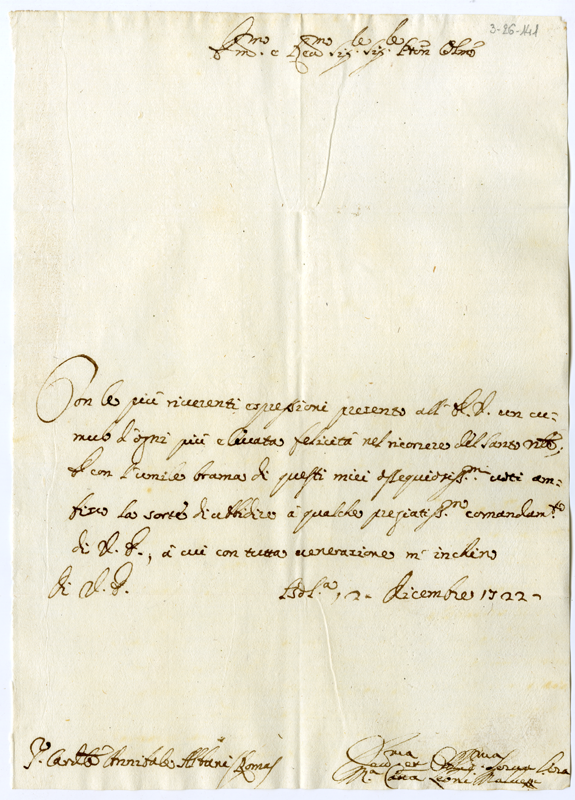 3-26-141
Em.mo e Rev.mo Sig.re Sig.re Pron Col.mo
Con le più riverenti espressioni presento all' E. V. un cu-
mulo d'ogni più elevata felicità nel ricorrere del Santo Nle;
E con l'umile brama di questi miei ossequiosiss.mi voti am-
bisco la sorte di ubbidire à qualche pregiatiss.mo comandam.to
di V. E., à cui con tutta venerazione m' inchino
Di V. E. Bol.a, 2 Dicembre 1722
Annibale Albani Roma